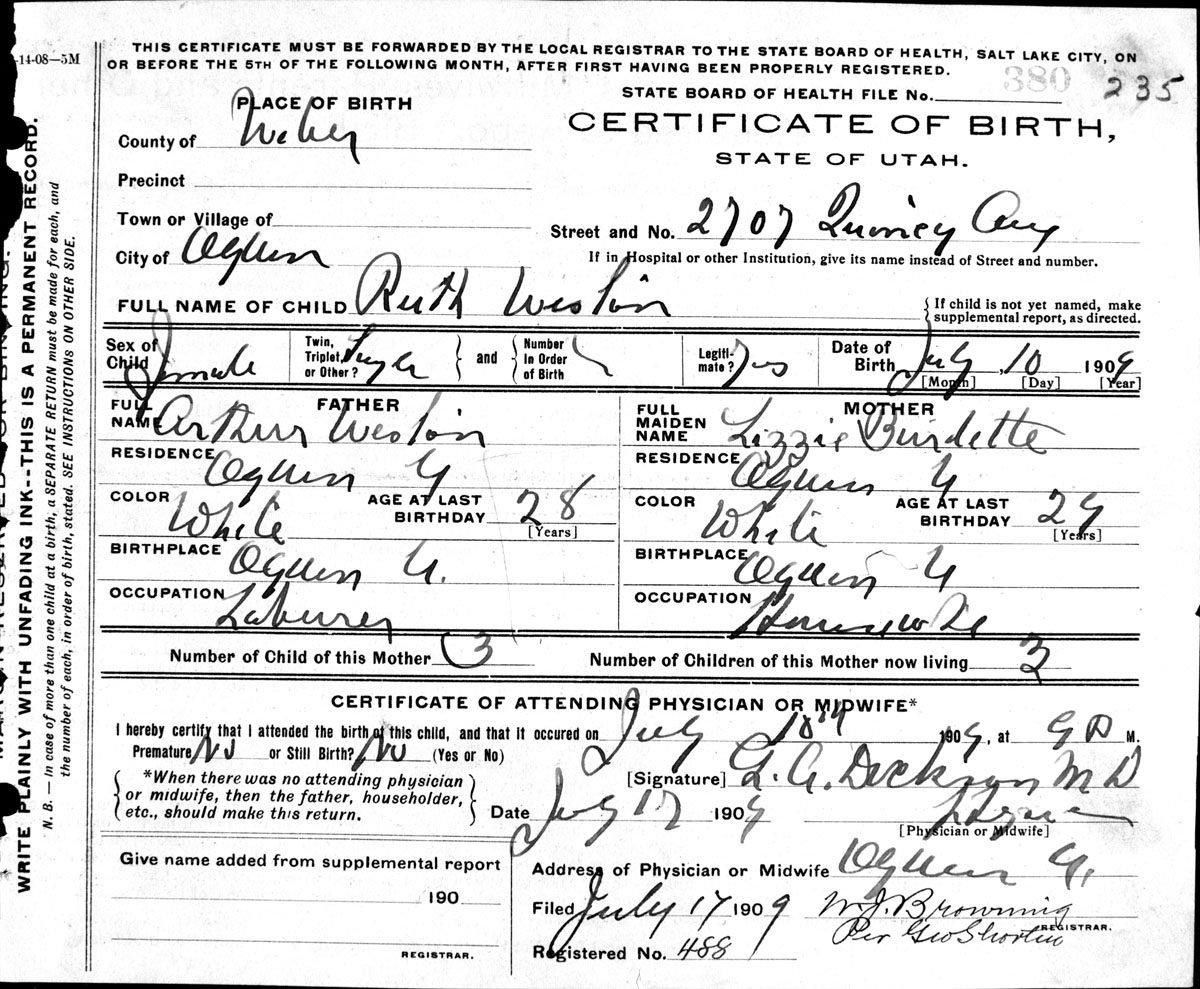 -14-08—5M
THIS CERTIFICATE MUST BE FORWARDED BY THE LOCAL REGISTRAR TO THE STATE BOARD OF HEALTH, SALT LAKE CITY, ON
OR BEFORE THE 5TH OF THE FOLLOWING MONTH, AFTER FIRST HAVING BEEN PROPERLY REGISTERED.
380
235
STATE BOARD OF HEALTH FILE No.
PLACE OF BIRTH
CERTIFICATE OF BIRTH,
STATE OF UTAH.
County of Weber
Precinct
Town or Village of
Street and No. 2707 Quincy Ave
City of Ogden
If in Hospital or other Institution, give its name instead of Street and number.
FULL NAME OF CHILD Ruth Weston
If child is not yet named, make
supplemental report, as directed.
Sex of Child Female
Twin, Triplet, or Other? Single
and
Number in Order of Birth
Legiti-mate? Yes
Date of Birth July, 10 1909
[Month] [Day] [Year]
FATHER
FULL NAME Arthur Weston
RESIDENCE Ogden U
COLOR White
AGE AT LAST BIRTHDAY 28
[Years]
BIRTHPLACE Ogden U.
OCCUPATION Laborer
MOTHER
FULL MAIDEN NAME Lizzie Burdette
RESIDENCE Ogden U
COLOR White
AGE AT LAST BIRTHDAY 29
[Years]
BIRTHPLACE Ogden U
OCCUPATION Housewife
Number of Child of this Mother 3
Number of Children of this Mother now living 3
CERTIFICATE OF ATTENDING PHYSICIAN OR MIDWIFE*
I hereby certify that I attended the birth of this child, and that it occured on July 10th 1909, at 9 P M.
Premature No or Still Birth? No (Yes or No)
*When there was no attending physician
or midwife, then the father, householder,
etc., should make this return.
[Signature] Dickson M D
Date July 17 1909
[Physician or Midwife]
Give name added from supplemental report
190
REGISTRAR.
Address of Physician or Midwife Ogden U.
Filed July 17 1909 W. J. Browning
REGISTRAR.
Per Geo
Registered No. 488
WRITE PLAINLY WITH UNFADING INK--THIS IS A PERMANENT RECORD.
N. B. — In case of more than one child at a birth, a SEPARATE RETURN must be made for each, and
the number of each, in order of birth, stated. SEE INSTRUCTIONS ON OTHER SIDE.